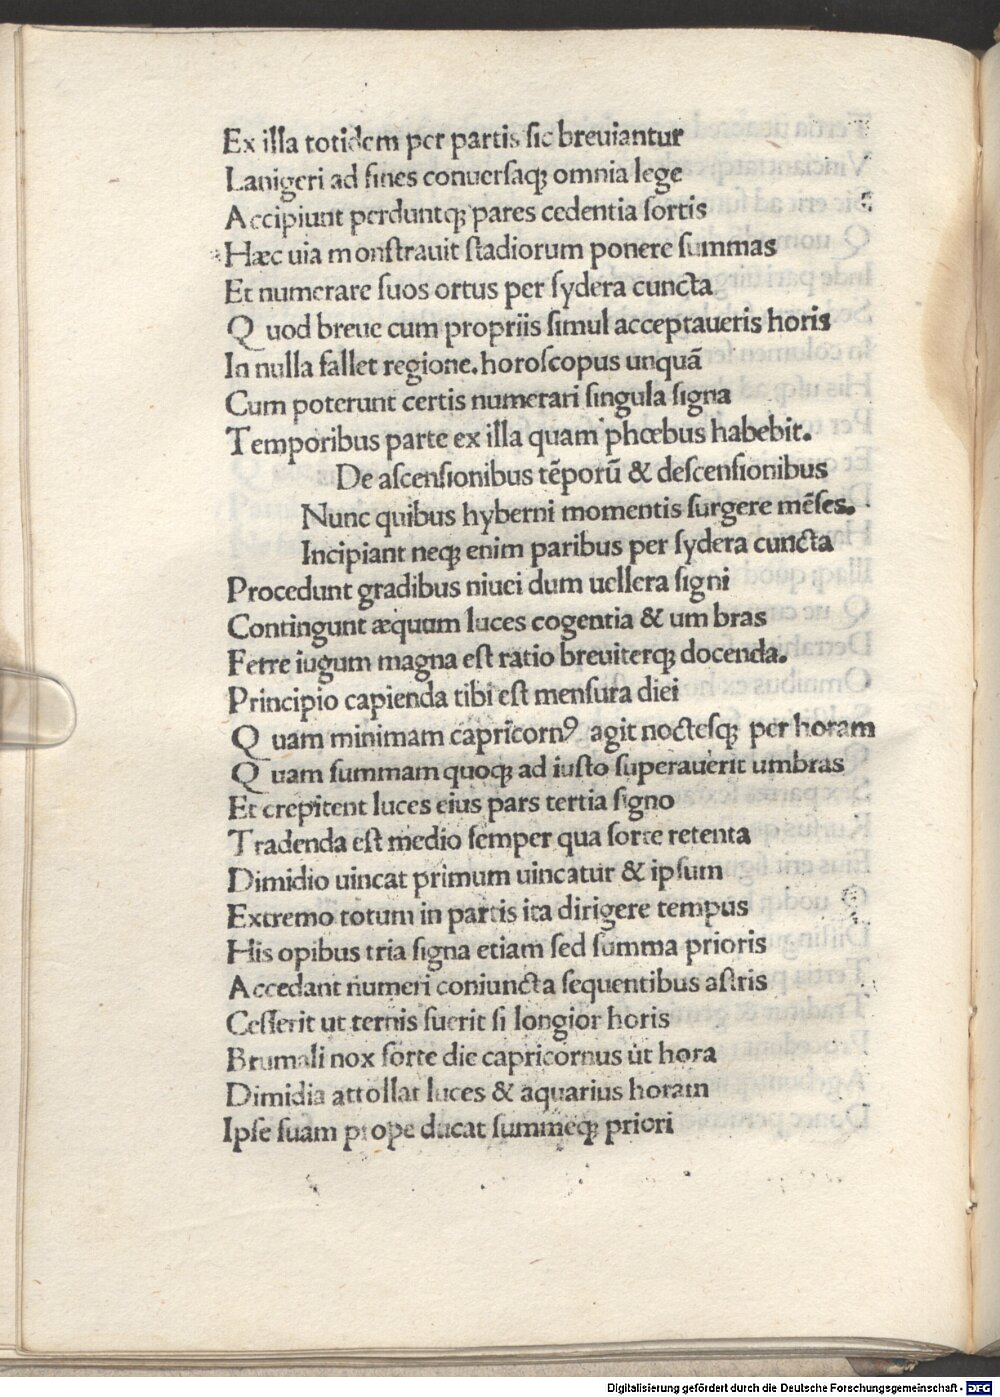 Ex illa totidem per partis ſic breuiantur
Lanigeri ad fines conuerſaqꝫ omnia lege
Accipiunt perduntqꝫ pares cedentia ſortis
Hæc uia monſtrauit ſtadiorum ponere ſummas
Et numerare ſuos ortus per ſydera cuncta
Q uod breue cum propriis ſimul acceptaueris horis
In nulla fallet regione. horoſcopus unquã
Cum poterunt certis numerari ſingula ſigna
Temporibus parte ex illa quam phœbus habebit.
De aſcenſionibus tẽporũ & deſcenſionibus
Nunc quibus hyberni momentis ſurgere mẽſes.
Incipiant neqꝫ enim paribus per ſydera cuncta
Procedunt gradibus niuei dum uellera ſigni
Contingunt æquum luces cogentia & um bras
Ferre iugum magna eſt ratio breuiterqꝫ docenda.
Principio capienda tibi eſt menſura diei
Q uam minimam capricornꝰ agit nocteſqꝫ per horam
Q uam ſummam quoqꝫ ad iuſto ſuperauerit umbras
Et crepitent luces eius pars tertia ſigno
Tradenda eſt medio ſemper qua ſorte retenta
Dimidio uincat primum uincatur & ipſum
Extremo totum in partis ita dirigere tempus
His opibus tria ſigna etiam ſed ſumma prioris
Accedant numeri coniuncta ſequentibus aſtris
Ceſſerit ut ternis fuerit ſi longior horis
Brumali nox ſorte die capricornus ut hora
Dimidia attollat luces & aquarius horam
Ipſe ſuam prope ducat ſummeqꝫ priori
Digitalisierung gefördert durch die Deutsche Forschungsgemeinschaft - DFG